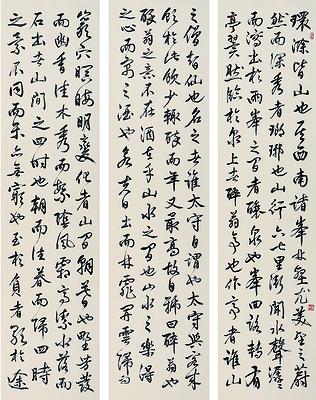 環滁皆山也其西南諸峰林壑尤美望之蔚
然而深秀者瑯琊也山行六七里漸聞水聲潺潺
而瀉出於兩峰之間者釀泉也峰回路轉有
亭翼然臨於泉上者醉翁亭也作亭者誰山
之僧智仙也名之者誰太守自謂也太守與客來
飲於此飲少輒醉而年又最高故自號曰醉翁也
醉翁之意不在酒在乎山水之間也山水之樂得
之心而寓之酒也若夫日出而林霏開雲歸而
巖穴暝晦明變化者山間朝暮也野芳發
而幽香佳木秀而繁陰風霜高潔水落而
石出者山間之四時也朝而往暮而歸四時
之景不同而樂亦無窮也至於負者歌於途